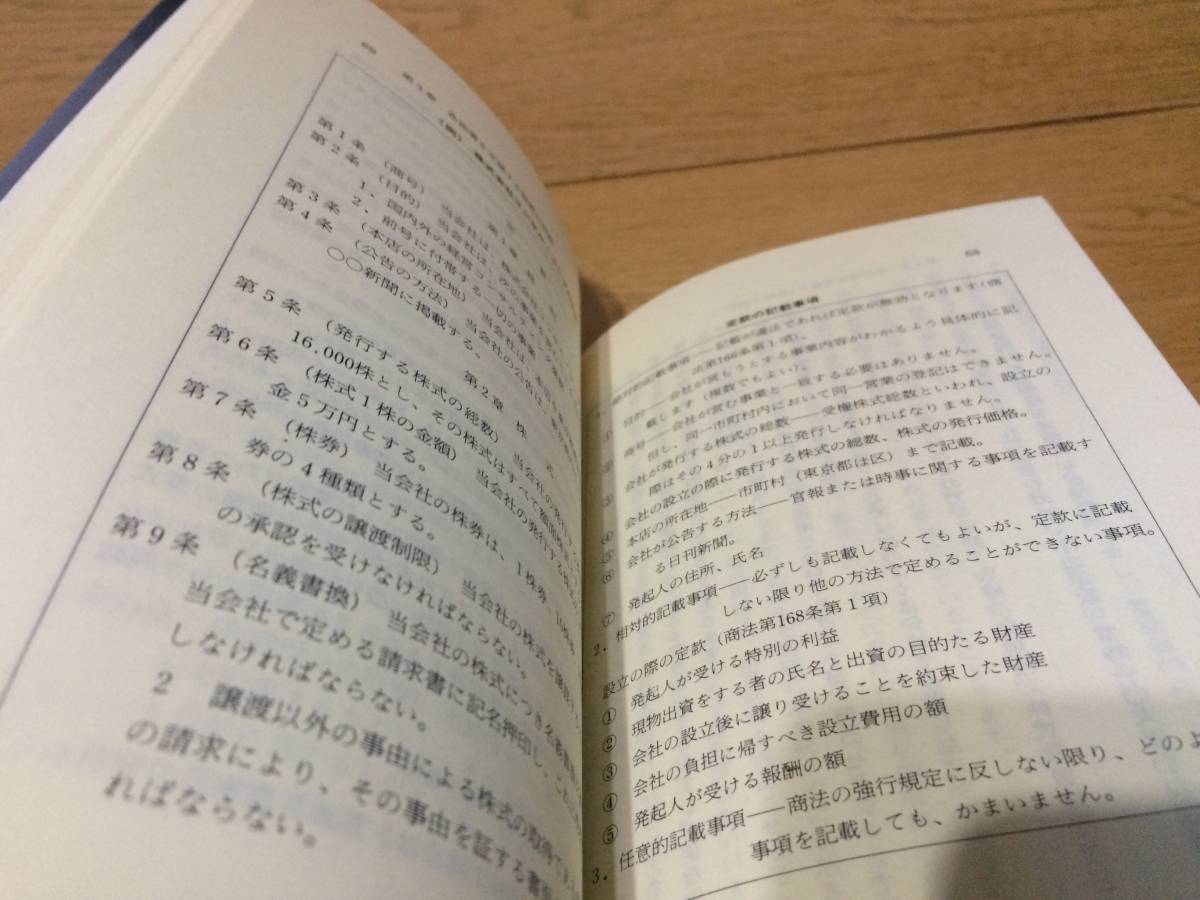 69
第1条 (商号) 当会社は、株式会社
第2条 (目的) 当会社は、次の事業
1. 国内外の経営コンサルテ
2. 前号に付帯する一切の事業
第3条 (本店の所在地) 当会社は、本店を
第4条 (公告の方法) 当会社の公告は、
○○新聞に掲載する。
第2章 株 式
第5条 (発行する株式の総数) 当会社の発行する
16,000株とし、その株式はすべて額面
第6条 (株式1株の金額) 当会社の発行する
金5万円とする。
第7条 (株券) 当会社の株券は、1株券、10株
券の4種類とする。
第8条 (株式の譲渡制限) 当会社の株式を譲渡
の承認を受けなければならない。
第9条 (名義書換) 当会社の株式につき名義書換
当会社で定める請求書に記名押印し、
しなければならない。
2 譲渡以外の事由による株式の取得
の請求により、その事由を証する書
ればならない。
68
定款の記載事項
記載が違法であれば定款が無効となります(商
法第166条第1項)。
目的——会社が営もうとする事業内容がわかるよう具体的に記
載します(複数でもよい)。
② 商号——会社が営む事業と一致する必要はありません。
但し、同一市町村内において同一営業の登記はできません。
③ 会社が発行する株式の総数——受権株式総数といわれ、設立の
際はその4分の1以上発行しなければなりません。
④ 会社の設立の際に発行する株式の総数、株式の発行価格。
⑤ 本店の所在地——市町村(東京都は区)まで記載。
⑥ 会社が公告する方法——官報または時事に関する事項を記載す
る日刊新聞。
⑦ 発起人の住所、氏名
2. 相対的記載事項——必ずしも記載しなくてもよいが、定款に記載
しない限り他の方法で定めることができない事項。
設立の際の定款(商法第168条第1項)
① 発起人が受ける特別の利益
② 現物出資をする者の氏名と出資の目的たる財産
③ 会社の設立後に譲り受けることを約束した財産
④ 会社の負担に帰すべき設立費用の額
⑤ 発起人が受ける報酬の額
3. 任意的記載事項——商法の強行規定に反しない限り、どのよ
事項を記載しても、かまいません。